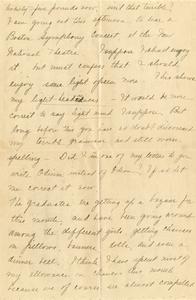 twenty-five pounds now - isn't that terrible?
I am going out this afternoon to hear a
Boston Symphony Concert at the New
National Theatre. I suppose I should enjoy
it, but must confess that I should
enjoy some light opera more. This shows
my light headedness - It would be more
correct to say light mind I suppose. But
long before this you have no doubt discovered
my terrible grammar and still worse
spelling - Did I in one of my letters to you
write Odium instead of Odeum? If so let
me correct it now.
The graduates are getting up a bazaar for
this month, and have been going around
among the different girls, getting chances
on pillows, banners, table, and even a
dinner bell. I think I have spent most of
my allowance on chances this month
because we of course are almost compelled